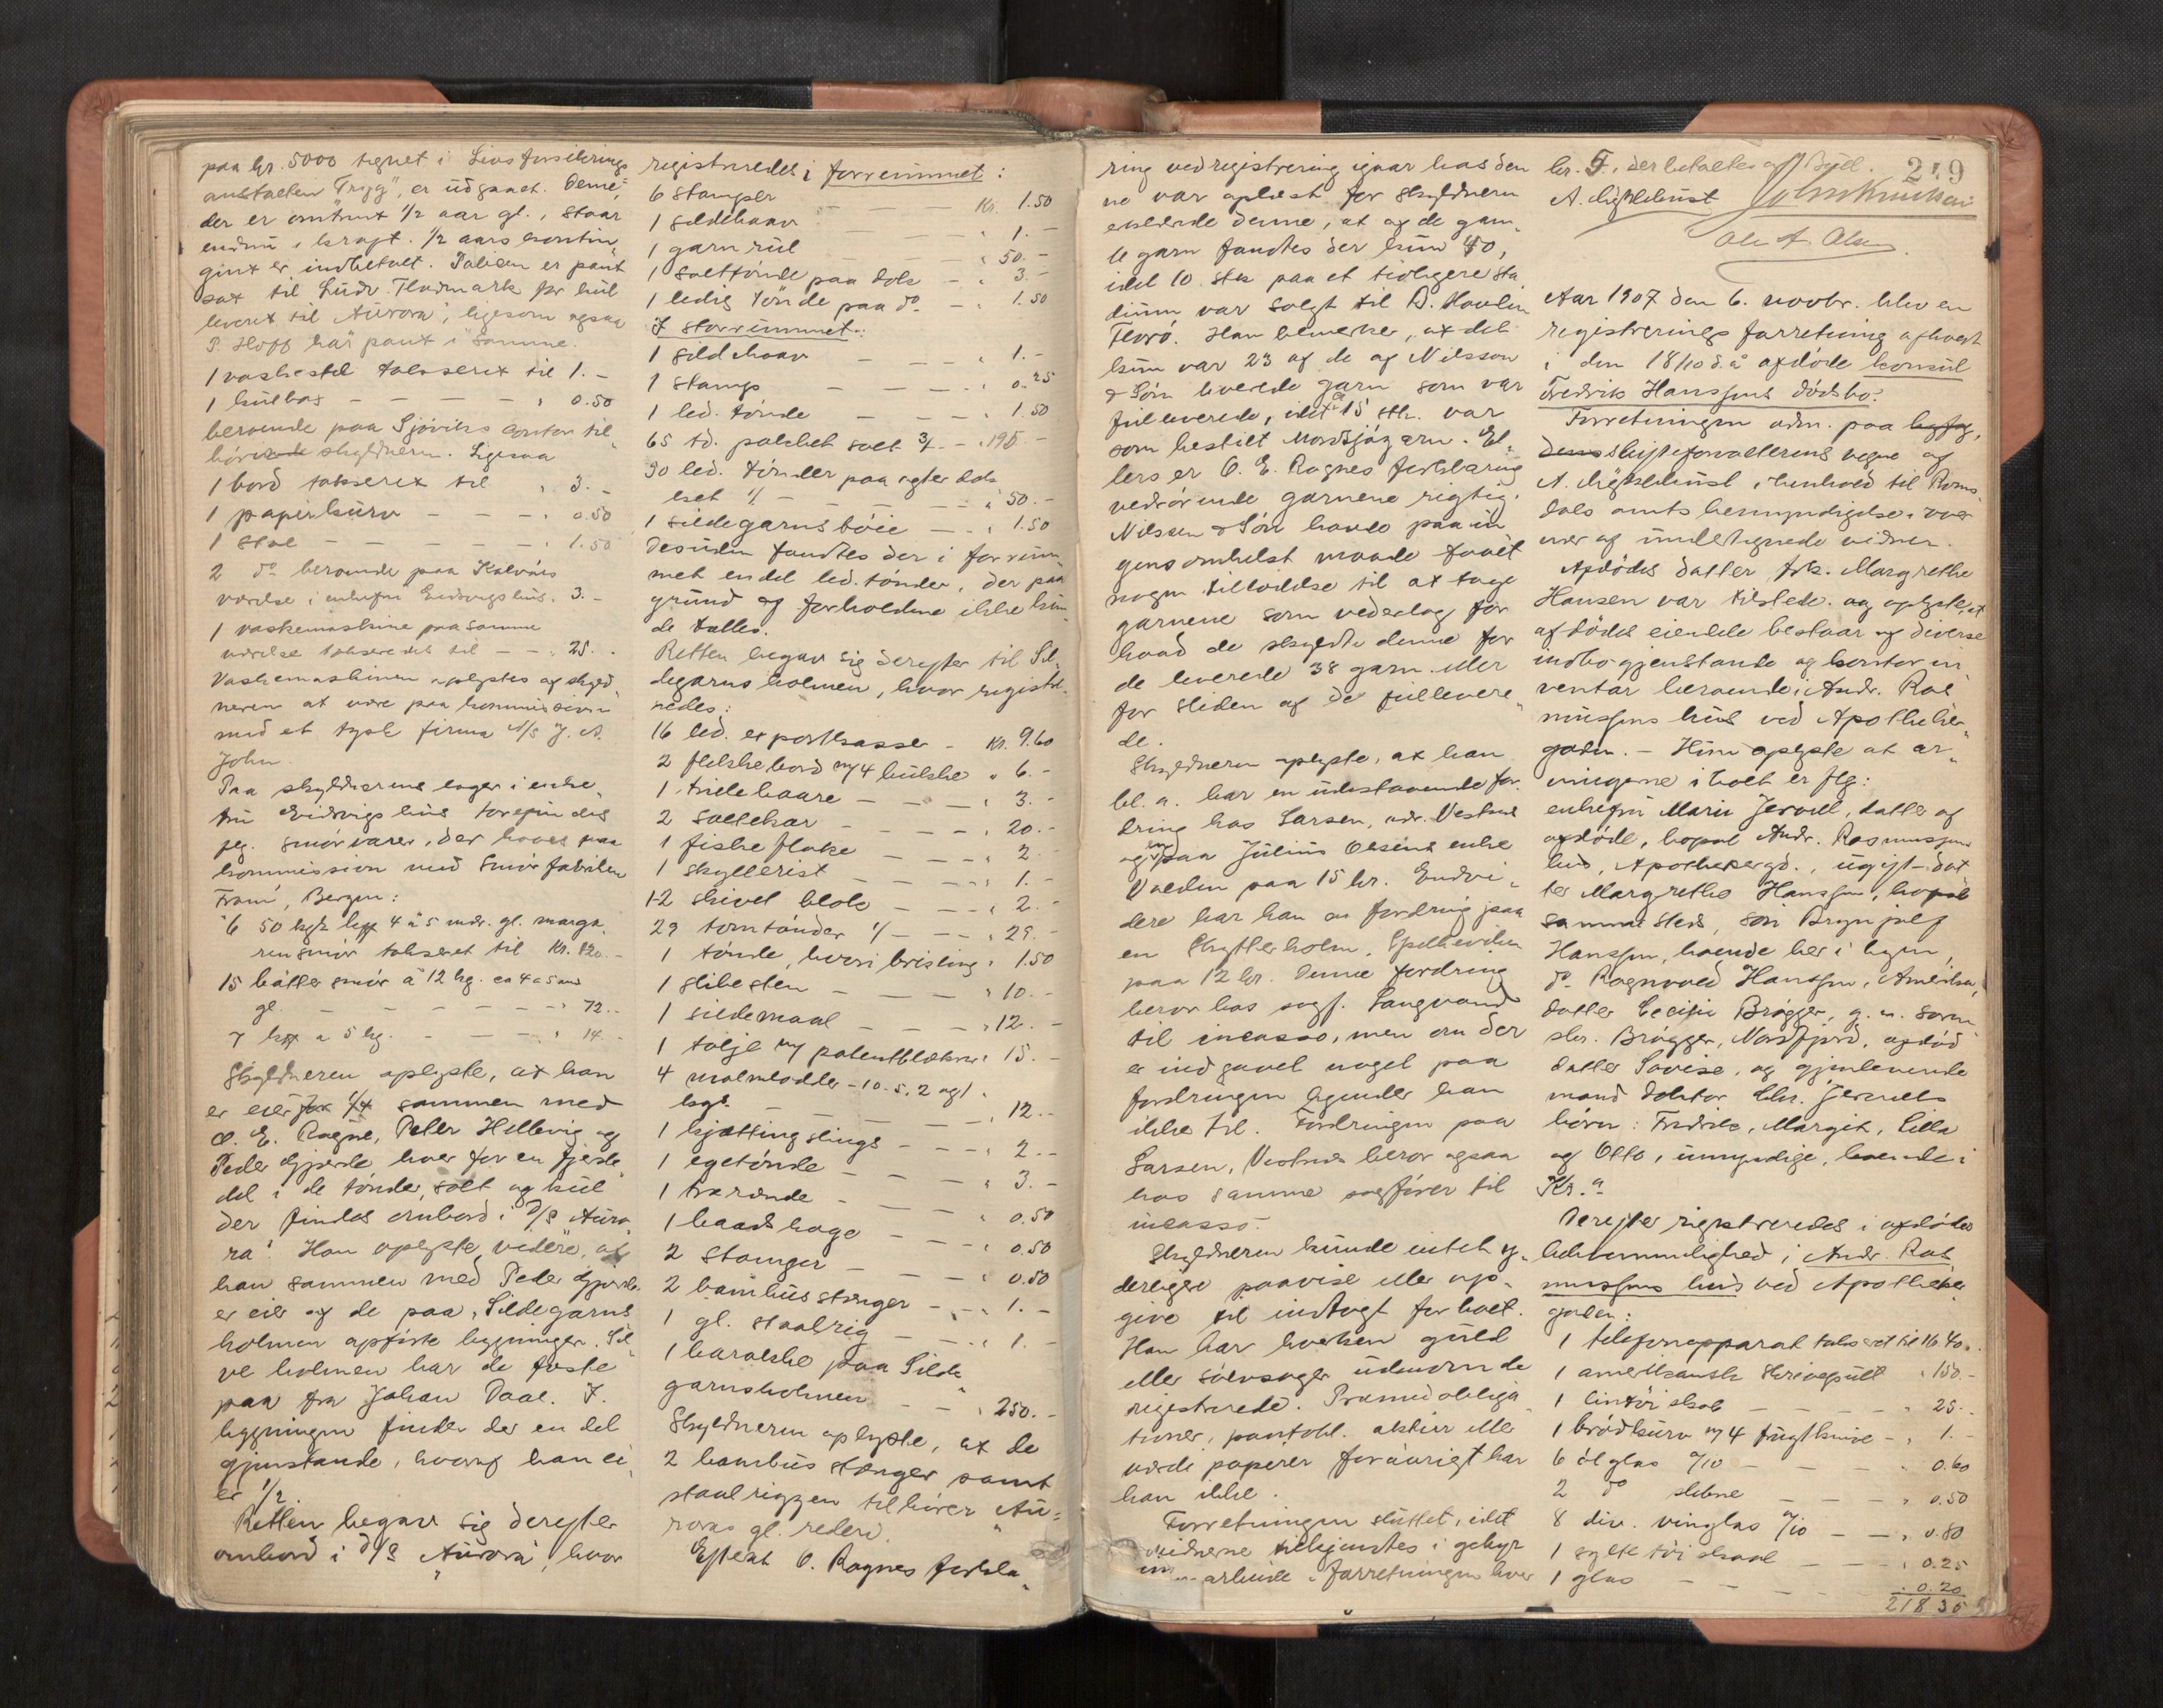 paa kr. 5000 tegnet i Livsforsikrings
anstalten "Trygg", er udgaaet. Denne,
der er omtrent 1/2 aar gl., staar
endnu i kraft. 1/2 aars kontin
gent er indbetalt. Polisen er pant
sat til Ludv. Flodmark for kul
leveret til "Aurora", ligesom ogsaa
P. Hoff har pant i samme.
1 vaskestel takseret til 1.-
1 kulbox - - - - " 0.50
beroende paa Sjøviks kontor til
hører skyldneren. Ligesaa
1 bord takseret til " 3.-
1 papirkurv - - - " 0.50
1 stol - - - - - " 1.50
2 do beroende paa
værelse i enkefru Endvigs hus. 3.-
1 vaskemaskine paa samme
værelse takseredes til - - " 25.-
Vaskemaskinen oplystes af skyld
neren at være paa kommission
med et tysk firma A/S J. A.
John.
Paa skyldnerens lager i enke
fru Endvigs hus forefindes
flg. smørvarer, der haves paa
kommission med Smørfabriken
"Fram", Bergen:
6 50 kgs krff 4 à 5 mdr. gl. marga
rinsmør takseret til Kr. 120.-
15 bøtter smør à 12 kg. ca 4 à 5 md
gl. - - - - - " 72.-
7 krff à 5 kg. - - - " 14.-
Skyldneren oplyste, at han
er eier for 1/4 sammen med
O. E. Ragne, Peter Hellevig og
Peder Gjerde hver for en fjerde
del i de tønder, salt og kul
der findes ombord i D/S "Auro
ra". Han oplyste videre, at
han sammen med Peder Gjerde
er eier af de paa Sildegarns
holmen opførte bygninger. Sel
ve holmen har de feste
paa fra Johan Daae. I
bygningen findes der en del
gjenstande, hvoraf han ei
er 1/2.
Retten begav sig derefter
ombord i D/S "Aurora", hvor
registreredes i forrummet:
6 stamper - - - Kr. 1.50
1 sildehaav - - - " 1.-
1 garnrul - - - " 50.-
1 salttønde paa dæk - " 3.-
1 ledig tønde paa do - " 1.50
I storrummet:
1 sildehaav - - - " 1.-
1 stamp - - - - " 0.25
1 led. tønde - - - " 1.50
65 td. pakket salt 3/4 - " 195.-
90 led. tønder paa agter dæk
hel 1/1 - - - " 50.-
1 sildegarnsbøie - - " 1.50
Desuden fandtes der i forrum
met endel led. tønder, der paa
grund af forholdene ikke kun
de tælles.
Retten begav sig derefter til Sil
degarnsholmen, hvor registre
redes:
16 led. exportkasser - Kr. 9.60
2 flekkebord m/4 kulske " 6.-
1 trillebaare - - - " 3.-
2 saltekar - - - " 20.-
1 fiskeflake - - - " 2.-
1 skyllerist - - - " 1.-
1-2 skivet blok - - - " 2.-
29 tomtønder 1/1 - - - " 29.-
1 tønde, hvori brisling " 1.50
1 slibesten - - - " 10.-
1 sildemaal - - - " 12.-
1 talje m/ patentblokker " 15.-
4 malmlodder - 10-5, 2 og 1
kgs. - - - - " 12.-
1 kjættingslings - - " 2.-
1 egetønde - - - " 3.-
1 trærende - - - " 0.50
1 baadshage - - - " 0.50
2 stanger - - - " 0.50
2 bambusstænger - - " 1.-
1 gl. staalrig - - - " 1.-
1 barakke paa Silde
garnsholmen - - " 250.-
Skyldneren oplyste, at de
2 bambusstænger samt
staalriggen tilhører "Au=
roras" gl. rederi.
Efterat O. Ragnes forkla
ring ved registrering igaar hos den
ne var oplæst for skyldneren
erklærede denne, at af de gam
le garn fandtes der kun 40,
idet 10 stk paa et tidligere sta
dium var solgt til D. Havlin
Florø. Han bemerker, at det
kun var 23 af de af Nilsson
& Søn leverede garn som var
feilleverede, idet 15 stk. var
som bestilt Nordsjøgarn. El
lers er O. E. Ragnes forklaring
vedrørende garnene rigtig.
Nilsson & Søn havde paa in
gensomhelst maade faaet
nogen tilladelse til at tage
garnene som vederlag for
hvad de skyldte denne for
de leverede 38 garn eller
for sliden af de feillevere
de.
Skyldneren oplyste, at han
bl. a. har en udestaaende for
dring hos Larsen, adr. Vestnes
og paa Julius Olsens enke
Volden paa 15 kr. Endvi
dere har han en fordring paa
en Skytterholm,
paa 12 kr. Denne fordring
beror hos sagf. Langvand
til incasso, men om der
er indgaaet noget paa
fordringen kjender han
ikke til. Fordringen paa
Larsen, Vestnes beror ogsaa
hos samme sagfører til
incasso.
Skyldneren kunde intet y
derligere paavise eller opp
give til indtægt for boet.
Han har hverken guld
eller sølvsager udenom de
registrerede. Præmieobliga
tioner, pantobl. aktier eller
værdipapirer forøvrigt har
han ikke.
Forretningen sluttet, idet
vidnerne tilkjendtes i gebyr
arbeide i forretningen hver
kr. 5, der betaltes af Byfl.
A. Digtelhust John Knudsen
Ole A. Olsen
219
Aar 1907 den 6. novbr. blev en
registrerings forretning afholdt
i den 18/10 d.å. afdøde konsul
Fredrik Hanssens dødsbo.
Forretningen adm. paa byfog,
dens skifteforvalterens vegne af
A. Digtelhust i henhold til Roms
dals amts bemyndigelse i over
vær af undertegnede vidner.
Afdødes datter frk. Margrethe
Hansen var tilstede og oplyste, at
afdødes eiendele bestaar af diverse
indbogjenstande og kontorin
ventar beroende i Andr. Ras
mussens hus ved Apotheker
gaden. - Hun oplyste at ar
vingerne i boet er flg:
enkefru Marie Jervell, datter af
afdøde, bopæl Andr. Rasmussens
hus, Apothekergd., ugift dat
ter Margrethe Hanssen, bopæl
sammesteds, søn Brynjulf
Hanssen, boende her i byen,
do Ragnvald Hanssen, Amerika,
datter Cecilie Brøgger, g. m. soren
skr. Brøgger, Nordfjord, afdød
datter Lovise, og gjenlevende
mand doktor Chr. Jervells
børn: Fredrik, Margit, Lilla
og Otto, umyndige, boende i
Kr.a
Derefter registreredes i afdødes
bekvemmelighed i Andr. Ras
mussens hus ved Apotheker
gaden:
1 telefonapparat takseret til 16.40.
1 amerikansk skrivepult " 150.-
1 lintøiskab - - - " 25.-
1 brødkurv m/ 4 frugtknive - " 1.-
6 ølglas a/10 - - - " 0.60
2 do slebne - - - " 0.50
8 div. vinglas a/10 - - " 0.80
1 syltetøiskaal - - - " 0.25
1 glas - - - - " 0.20
218 35